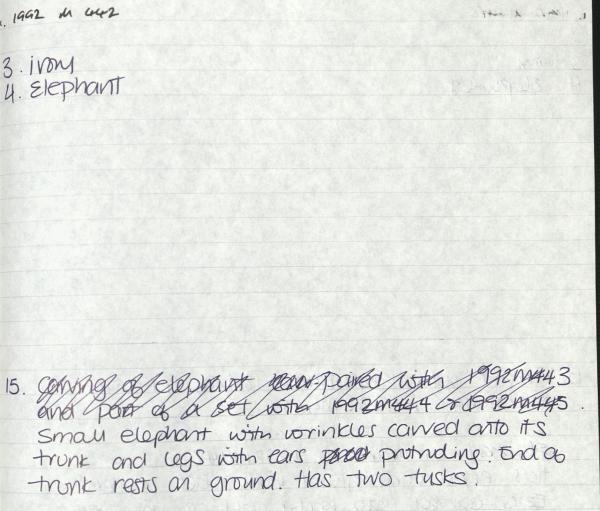 1. 1992 M 442
3. ivory
4. Elephant
15. Carving of elephant paired with 1992M443
and part of a set with 1992M444 & 1992M445.
Small elephant with wrinkles carved onto its
trunk and legs with ears protruding. End of
trunk rests on ground. Has two tusks.